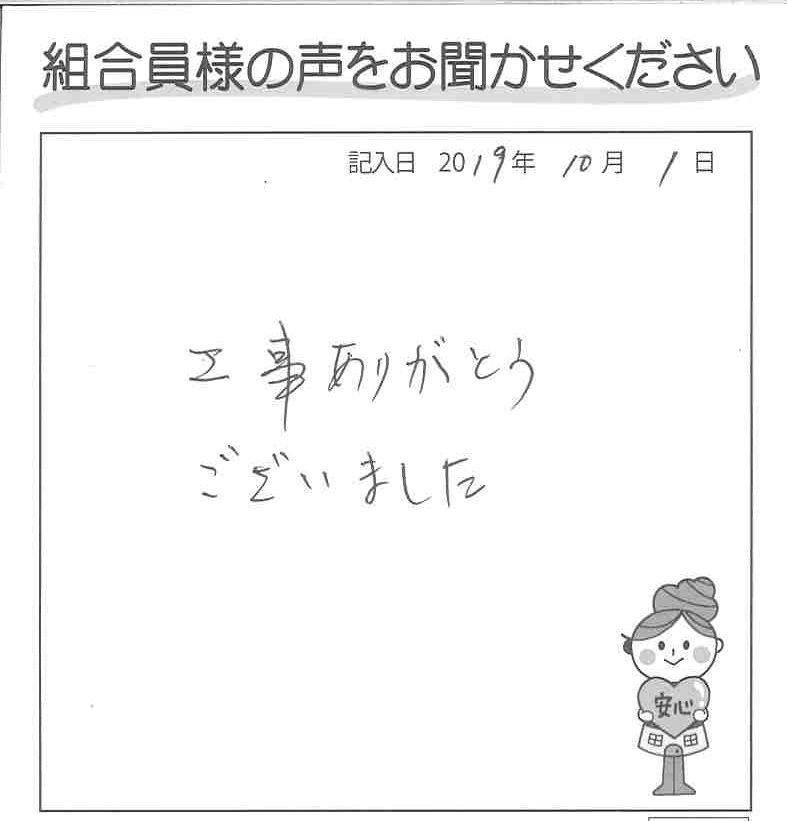 組合員様の声をお聞かせください
記入日 2019年 10月 1日
工事ありがとう
ございました
安心